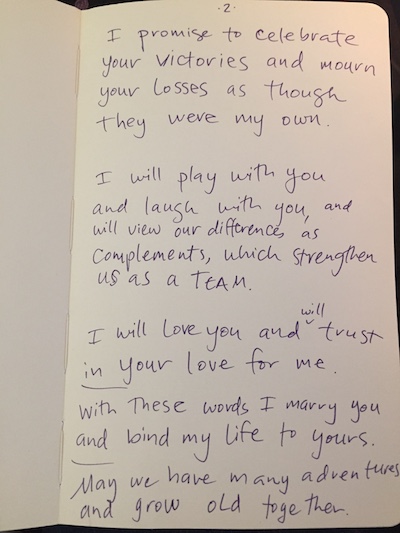 · 2 ·
I promise to celebrate
your victories and mourn
your losses as though
they were my own.
I will play with you
and laugh with you, and
will view our differences as
complements, which strengthen
us as a TEAM.
I will love you and will trust
in your love for me.
With these words I marry you
and bind my life to yours.
May we have many adventures
and grow old together.